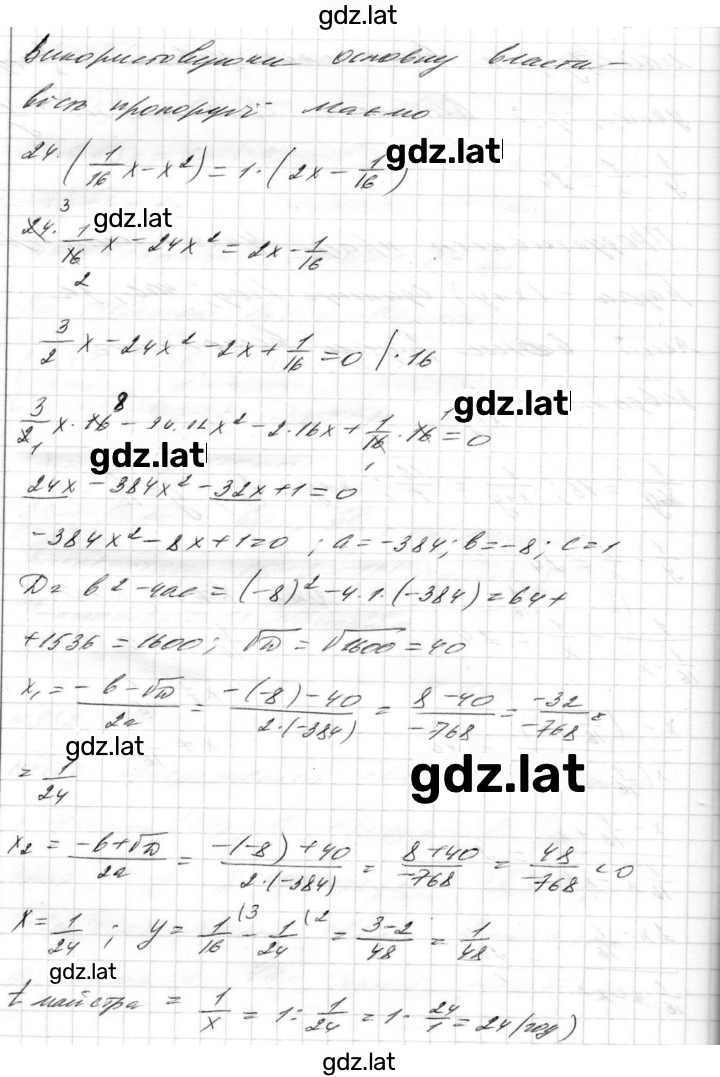 gdz.lat
Використовуючи основну власти-
вість пропорції маємо
24·(1/16 x - x²) = 1·(2x - 1/16)
gdz.lat
24·1/16 x - 24x² = 2x - 1/16
gdz.lat
3/2 x - 24x² - 2x + 1/16 = 0 /·16
gdz.lat
3/2 x·16 - 24·16x² - 2·16x + 1/16·16 = 0
gdz.lat
24x - 384x² - 32x + 1 = 0
-384x² - 8x + 1 = 0 ; a = -384; b = -8; c = 1
D = b² - 4ac = (-8)² - 4·1·(-384) = 64 +
+1536 = 1600; √D = √1600 = 40
x₁ = (-b - √D)/2a = (-(-8) - 40)/(2·(-384)) = (8 - 40)/-768 = -32/-768 =
gdz.lat
= 1/24
gdz.lat
x₂ = (-b + √D)/2a = (-(-8) + 40)/(2·(-384)) = (8 + 40)/-768 = 48/-768 < 0
x = 1/24 ; y = 1/16 (3 - 1/24 (2 = (3 - 2)/48 = 1/48
gdz.lat
t майстра = 1/x = 1 : 1/24 = 1·24/1 = 24 (год)
gdz.lat